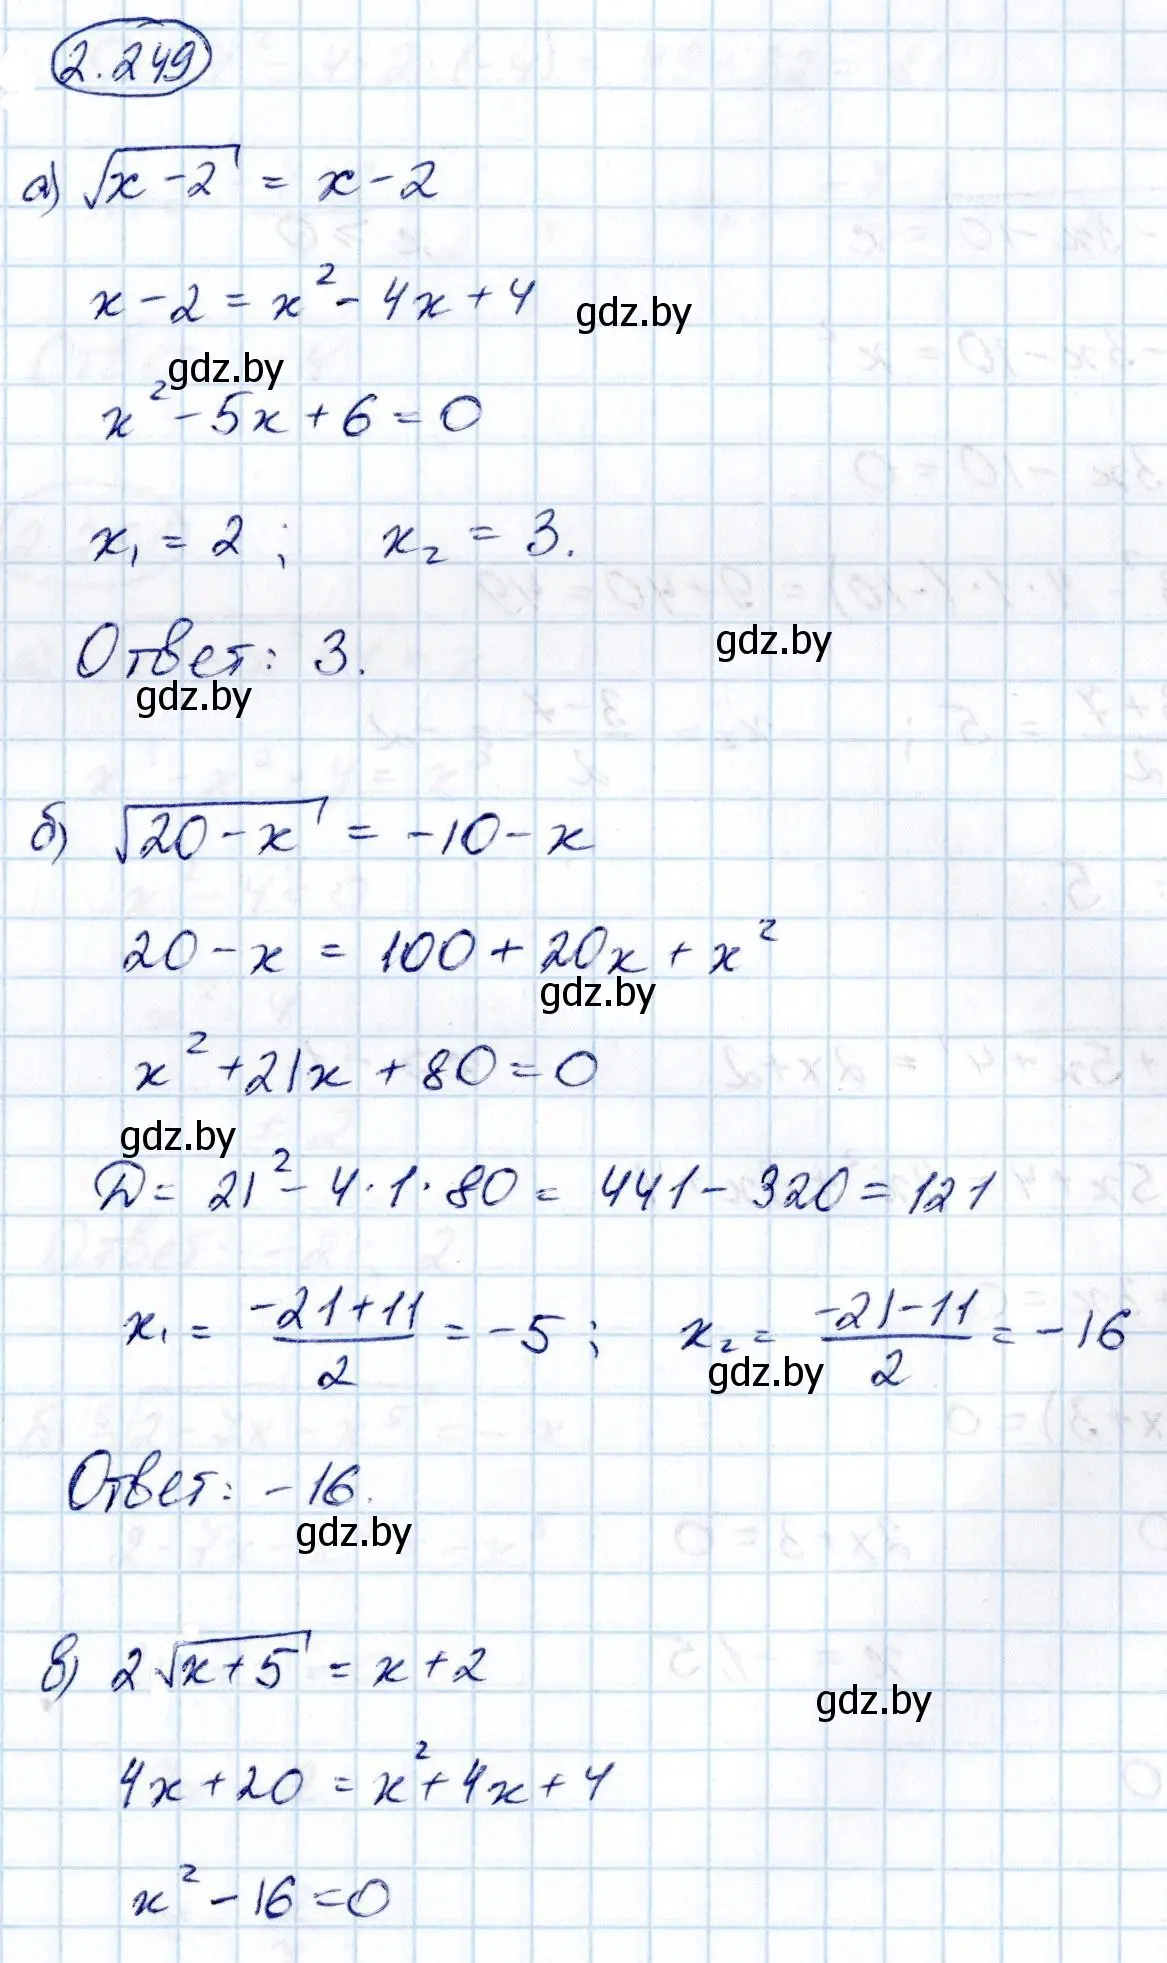 2.249
а) √(x-2) = x-2
x-2 = x²-4x+4
gdz.by
gdz.by
x²-5x+6=0
x₁=2; x₂=3.
Ответ: 3.
gdz.by
gdz.by
б) √(20-x) = -10-x
20-x = 100+20x+x²
gdz.by
x²+21x+80=0
gdz.by
D= 21²-4·1·80= 441-320=121
x₁= (-21+11)/2 = -5; x₂= (-21-11)/2 = -16
gdz.by
Ответ: -16.
gdz.by
в) 2√(x+5) = x+2
gdz.by
4x+20=x²+4x+4
x²-16=0